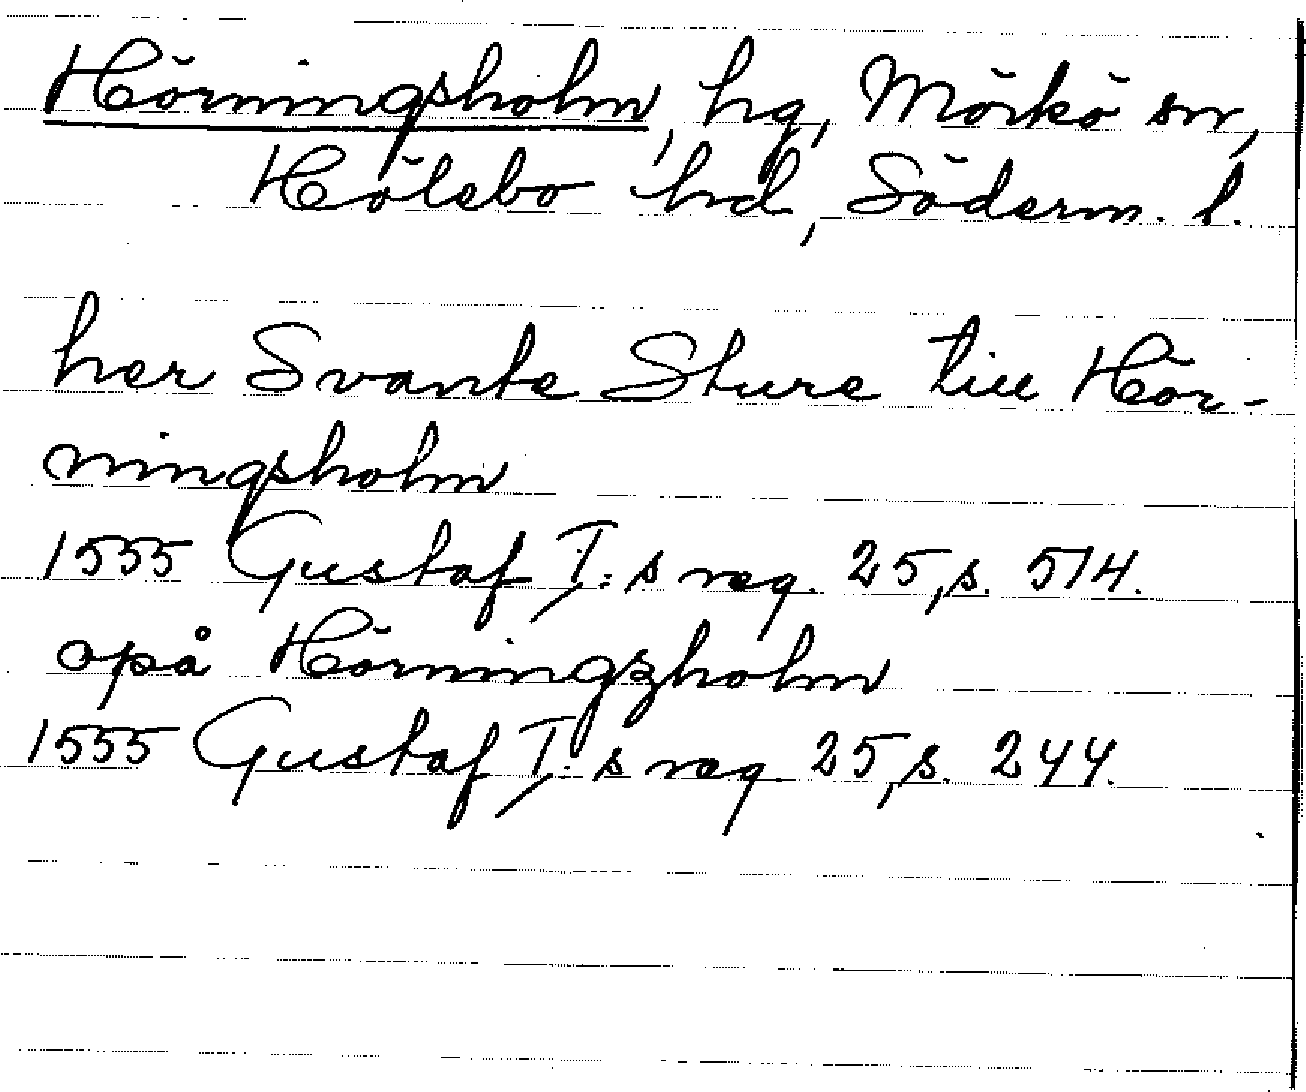 Hörningsholm, hg, Mörkö sn,
Hölebo hd, Söderm. l.
her Svante Sture till Hör-
ningsholm
1555 Gustaf I:s reg. 25, s. 514.
opå Hörningzholm
1555 Gustaf I:s reg. 25, s. 244.